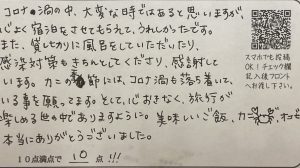 コロナ渦の中、大変な時ではあると思いますが、
心よく宿泊をさせてもらえて、うれしかったです。
また、貸しきりに風呂をしていただいたり、
感染対策もきちんとしてくださり、感謝して
います。カニの季節には、コロナ渦も落ち着いて
いる事を願ってます。そして、心おきなく、旅行が
楽しめる世の中でありますように。美味しいご飯、カニ オコゼ
本当にありがとうございました。
10点満点で 10 点!!!
スマホでも投稿
OK！チェック欄
記入後フロント
へお渡し下さい。